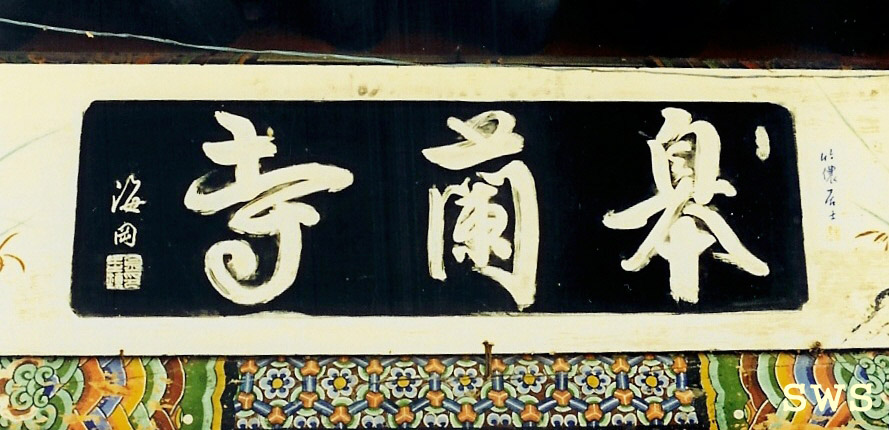 皐蘭寺
海岡
SWS